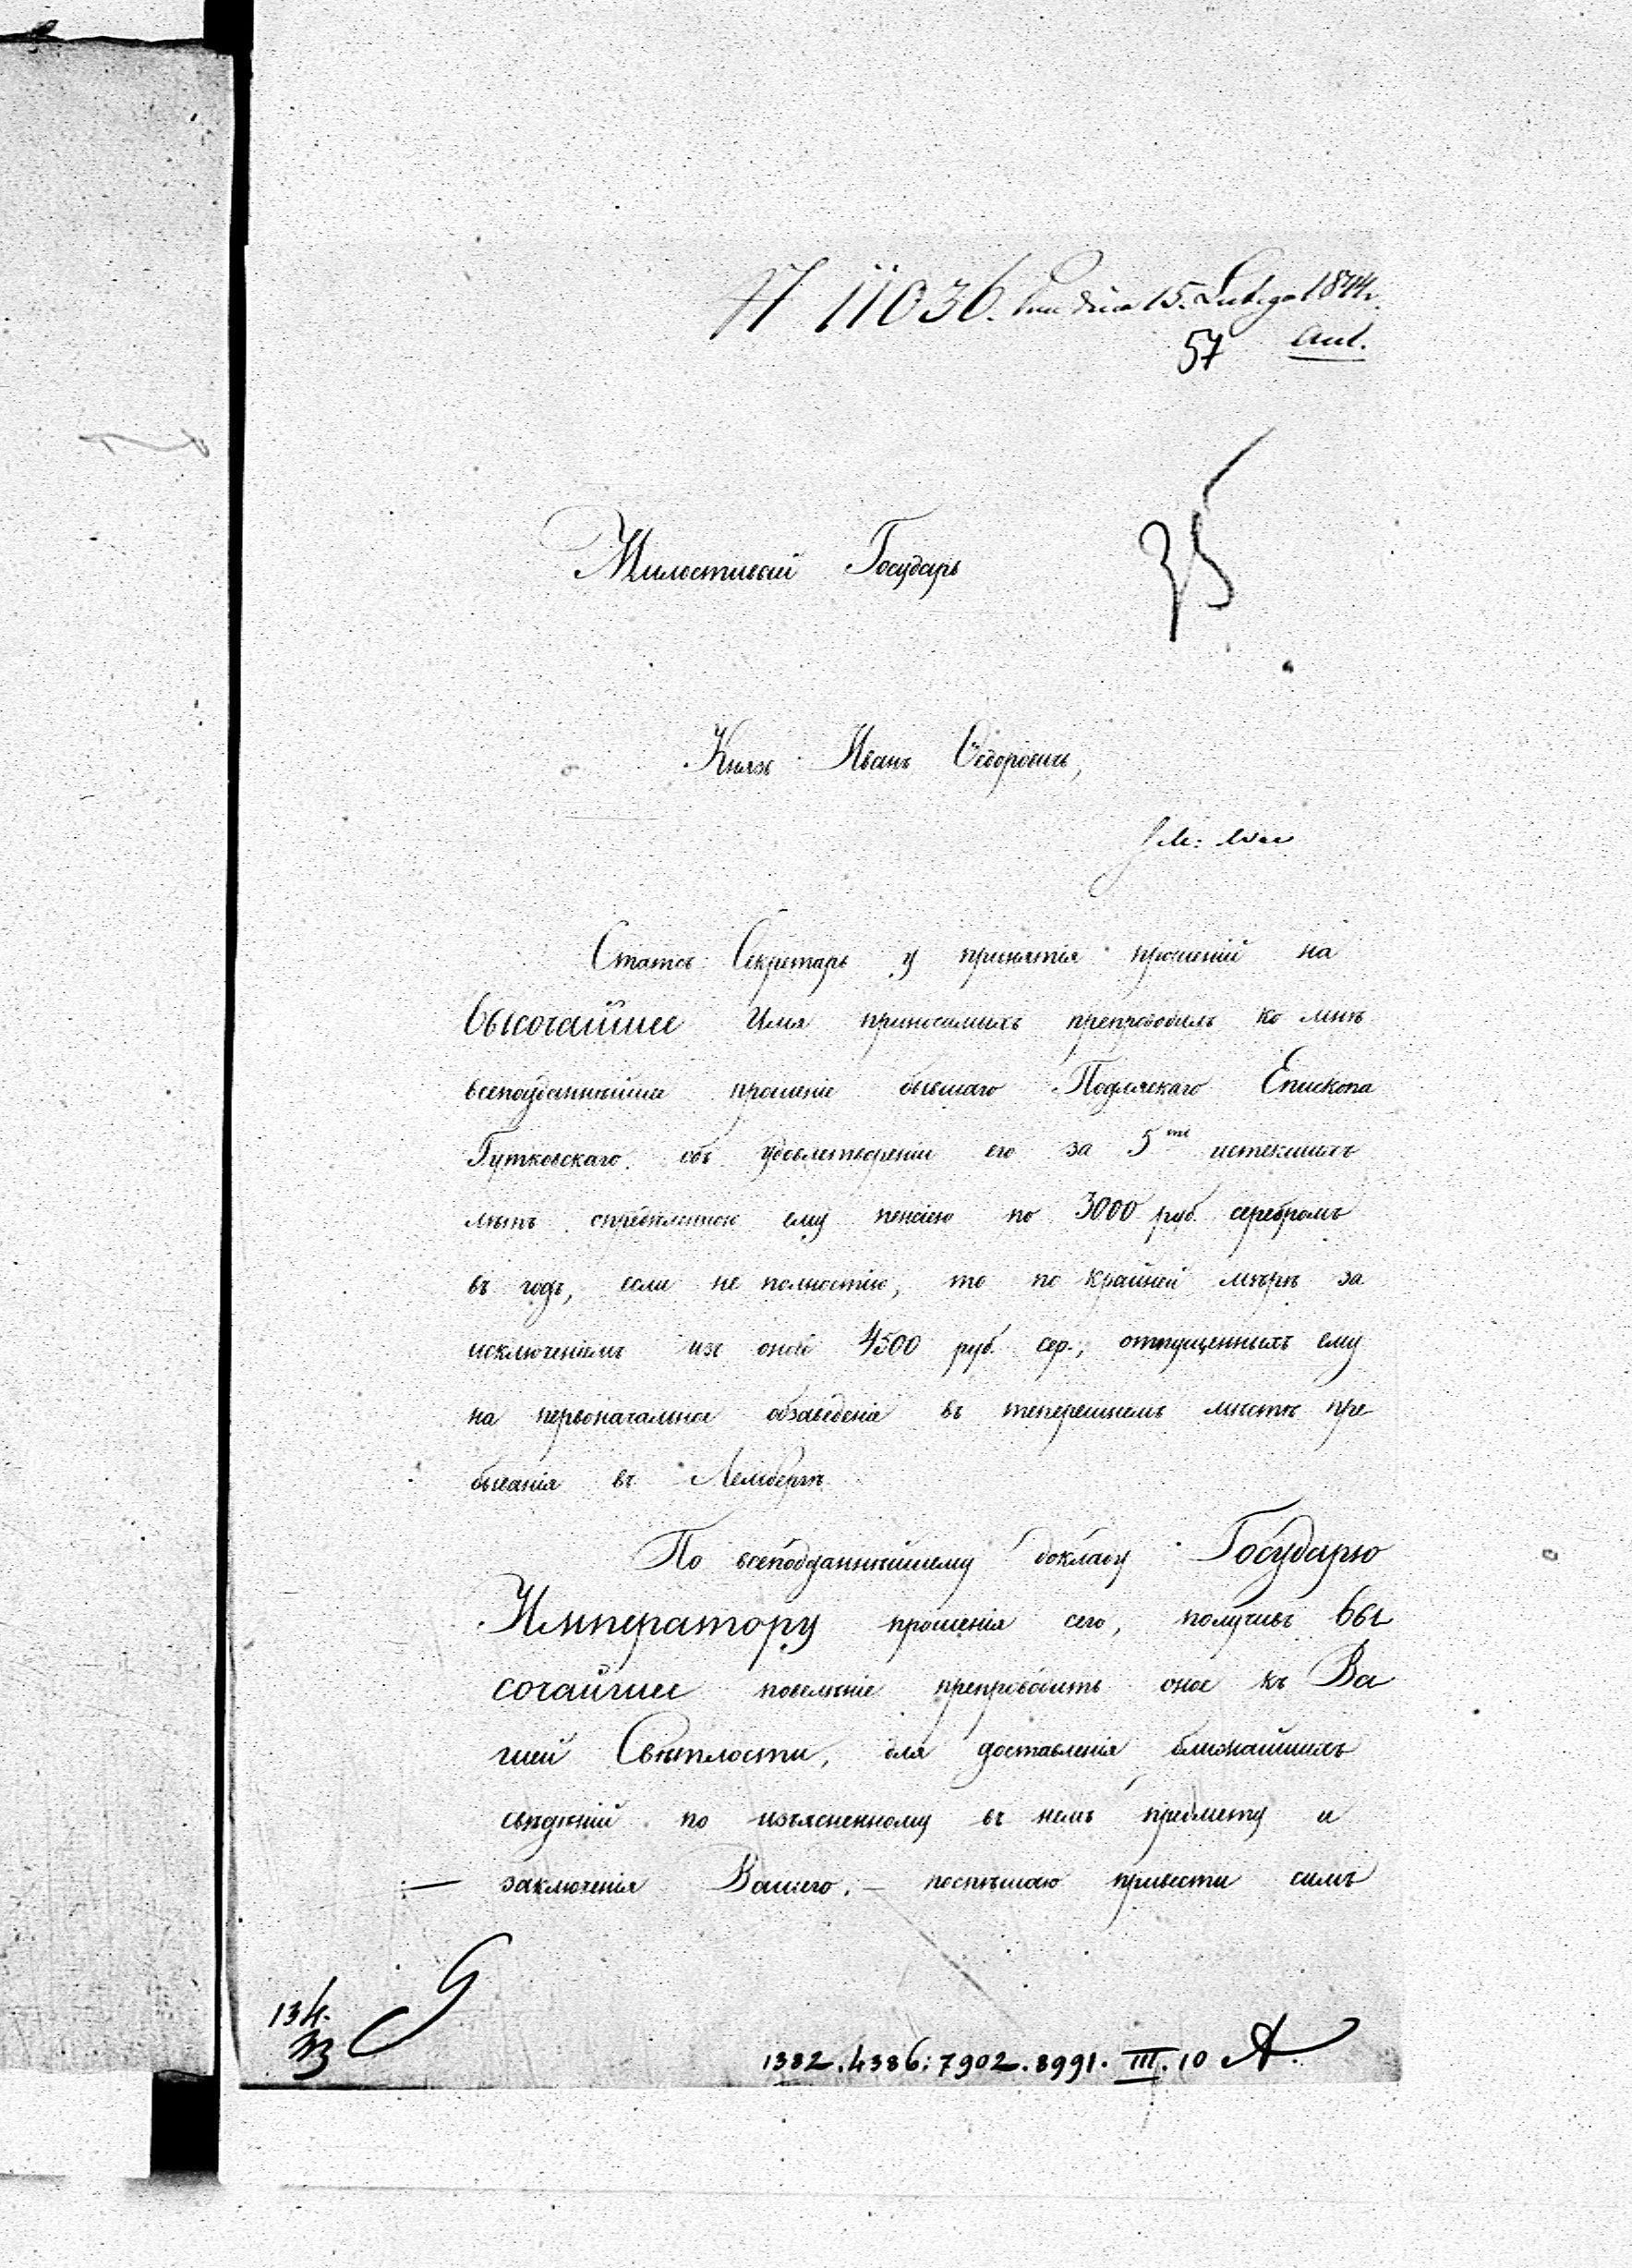 11036. dnia 15. Lutego 1844 r.
57 aut.
Милостивый Государь
Князь Иванъ Ѳедоровичь,
Статсъ Секретарь у принятія прошеній на
Высочайшее Имя приносимыхъ препроводилъ ко мнѣ
всеподданнѣйшее прошеніе бывшаго Подляскаго Епископа
Гутковскаго, объ удовлетвореніи его за 5ть истекшихъ
лѣтъ опредѣленною ему пенсіею по 3000 руб. серебромъ
въ годъ, если не полностію, то по крайней мѣрѣ за
исключеніемъ изъ оной 4500 руб. сер., отпущенныхъ ему
на первоначальное обзаведеніе въ теперешнемъ мѣстѣ пре
быванія въ Лембергѣ.
По всеподданнѣйшему докладу Государю
Императору прошенія сего, получивъ Вы
сочайшее повелѣніе препроводить оное къ Ва
шей Свѣтлости, для доставленія ближайшихъ
свѣдѣній по изъясненному въ немъ предмету и
заключенія Вашего, — поспѣшаю привести симъ
134.
1382.4386:7902.8991. III.10 A.